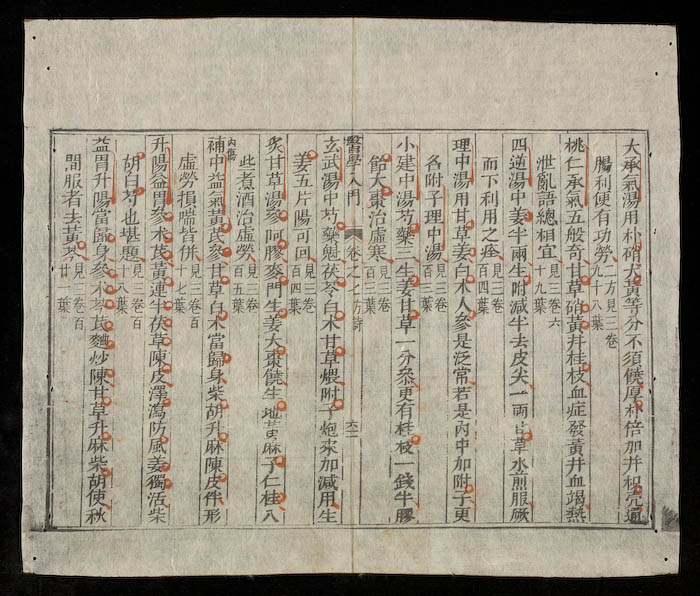 大承氣湯用朴硝大黃等分不須饒厚朴倍加并枳壳通
腸利便有功勞二方見三卷九十八葉
桃仁承氣五般奇甘草硝黃并桂枝血症發黃并血竭熱
泄亂語總相宜見三卷六十九葉
四逆湯中姜半兩生附減半去皮尖一兩甘草水煎服厥
而下利用之痊見三卷百四葉
理中湯用甘草姜白朮人參是泛常若是內中加附子更
名附子理中湯見三卷百三葉
小建中湯芍藥三生姜甘草一分叅更有桂枝一錢半膠
飴大棗治虛寒見三卷百三葉
醫學入門 卷之七方詩
玄武湯中芍藥魁茯苓白朮甘草煨附子炮來加減用生
姜五片陽可回見三卷百四葉
炙甘草湯參阿膠麥門生姜大棗饒生地黃麻子仁桂八
些煮酒治虛勞見三卷百五葉
內傷
補中益氣黃芪參甘草白朮當歸身柴胡升麻陳皮伴形
虛勞損喘皆併見三卷百十七葉
升陽益胃參朮芪黃連半茯草陳皮澤瀉防風姜獨活柴
胡白芍也堪題見三卷百十八葉
益胃升陽當歸身參朮芩芪麯炒陳甘草升麻柴胡使秋
間服者去黃芩見三卷百廿一葉